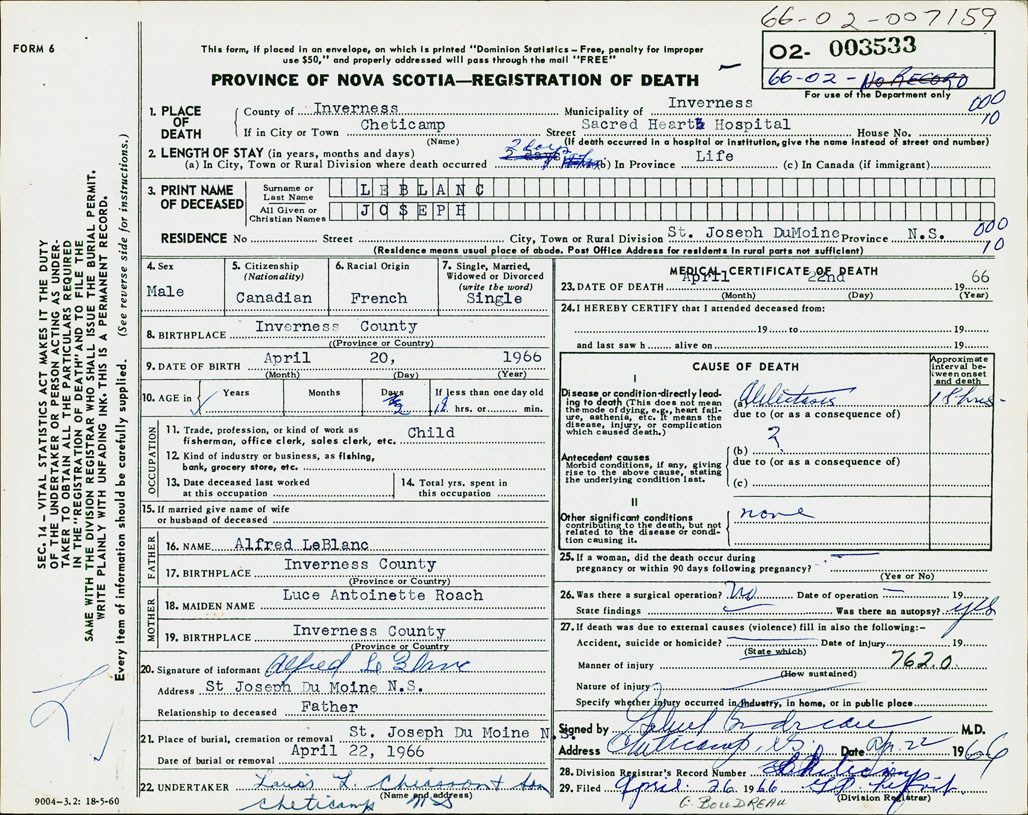 66-02-007159
FORM 6
This form, if placed in an envelope, on which is printed "Dominion Statistics—Free, penalty for improper
use $50," and properly addressed will pass through the mail "FREE"
02- 003533
66-02- NO RECORD
For use of the Department only
PROVINCE OF NOVA SCOTIA—REGISTRATION OF DEATH
000
10
1. PLACE OF DEATH
County of Inverness Municipality of Inverness
If in City or Town Cheticamp Street Sacred Heart Hospital House No.
(Name) (If death occurred in a hospital or institution, give the name instead of street and number)
2. LENGTH OF STAY (in years, months and days)
(a) In City, Town or Rural Division where death occurred 2 days (b) In Province Life (c) In Canada (if immigrant)
3. PRINT NAME OF DECEASED
Surname or Last Name LEBLANC
All Given or Christian Names JOSEPH
000
10
RESIDENCE No Street City, Town or Rural Division St. Joseph DuMoine Province N.S.
(Residence means usual place of abode. Post Office Address for residents in rural parts not sufficient)
4. Sex
Male
5. Citizenship
(Nationality)
Canadian
6. Racial Origin
French
7. Single, Married,
Widowed or Divorced
(write the word)
Single
8. BIRTHPLACE Inverness County
(Province or Country)
9. DATE OF BIRTH April 20, 1966
(Month) (Day) (Year)
10. AGE in Years Months Days 2 If less than one day old
18 hrs. or min.
OCCUPATION
11. Trade, profession, or kind of work as
fisherman, office clerk, sales clerk, etc. Child
12. Kind of industry or business, as fishing,
bank, grocery store, etc.
13. Date deceased last worked
at this occupation
14. Total yrs. spent in
this occupation
15. If married give name of wife
or husband of deceased
FATHER
16. NAME Alfred LeBlanc
17. BIRTHPLACE Inverness County
(Province or Country)
MOTHER
18. MAIDEN NAME Luce Antoinette Roach
19. BIRTHPLACE Inverness County
(Province or Country)
20. Signature of informant Alfred Le Blanc
Address St Joseph Du Moine N.S.
Relationship to deceased Father
21. Place of burial, cremation or removal St. Joseph Du Moine N.
Date of burial or removal April 22, 1966
22. UNDERTAKER Louis L. Chiasson & Son
(Name and address)
Cheticamp NS
MEDICAL CERTIFICATE OF DEATH
23. DATE OF DEATH April 22nd 1966
(Month) (Day) (Year)
24. I HEREBY CERTIFY that I attended deceased from:
19 to 19
and last saw h alive on 19
CAUSE OF DEATH
Approximate
interval be-
tween onset
and death
I
Disease or condition directly lead-
ing to death (This does not mean
the mode of dying, e.g., heart fail-
ure, asthenia, etc. It means the
disease, injury, or complication
which caused death.)
(a) Atelectasis 18 hrs-
due to (or as a consequence of)
?
(b)
due to (or as a consequence of)
(c)
Antecedent causes
Morbid conditions, if any, giving
rise to the above cause, stating
the underlying condition last.
II
Other significant conditions
contributing to the death, but not
related to the disease or condi-
tion causing it.
none
25. If a woman, did the death occur during
pregnancy or within 90 days following pregnancy?
(Yes or No)
26. Was there a surgical operation? No Date of operation 19
State findings Was there an autopsy? yes
27. If death was due to external causes (violence) fill in also the following:—
Accident, suicide or homicide? Date of injury 19
(State which)
Manner of injury 762.0
(How sustained)
Nature of injury
Specify whether injury occurred in industry, in home, or in public place
Signed by M.D.
Address Cheticamp, N.S. Date Apr. 22 1966
28. Division Registrar's Record Number
29. Filed April 26 1966
(Division Registrar)
G. BOUDREAU
SEC. 14 — VITAL STATISTICS ACT MAKES IT THE DUTY
OF THE UNDERTAKER OR PERSON ACTING AS UNDER-
TAKER TO OBTAIN ALL THE PARTICULARS REQUIRED
IN THE "REGISTRATION OF DEATH" AND TO FILE THE
SAME WITH THE DIVISION REGISTRAR WHO SHALL ISSUE THE BURIAL PERMIT.
WRITE PLAINLY WITH UNFADING INK. THIS IS A PERMANENT RECORD.
Every item of information should be carefully supplied. (See reverse side for instructions.)
9004-3.2: 18-5-60